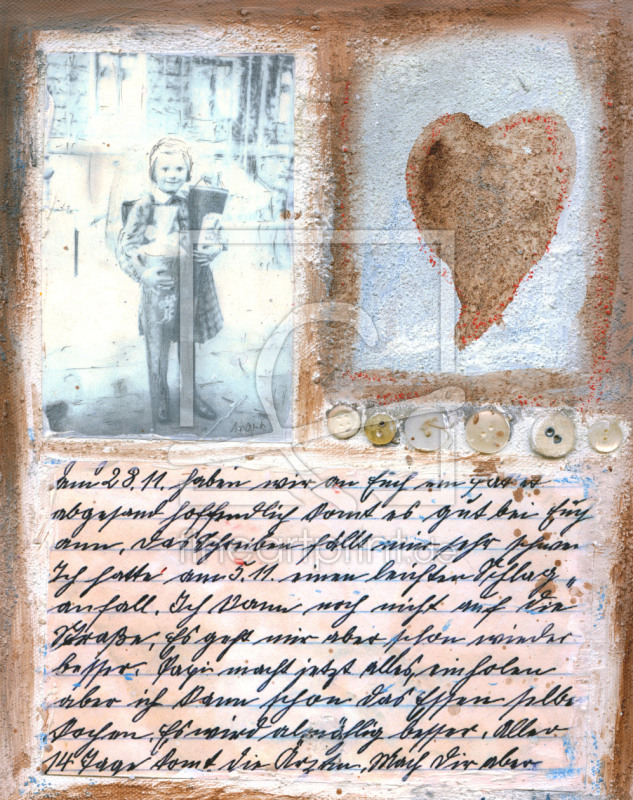 Am 28.11. haben wir an Euch ein pak et
abgesand hoffendlich komt es gut bei Euch
ann, das Schreiben fällt mir sehr schwer
Ich hatte am 5.11. einen leichten Schlag„
anfall. Ich kann noch nicht auf die
Straße, Es geht mir aber schon wieder
besser. Papi macht jetzt alles, einholen
aber ich kann schon das Essen selbe
kochen. Es wird almählig besser. Aller
14 Tage komt die Ärztin, Mach Dir aber
fineartprint.de